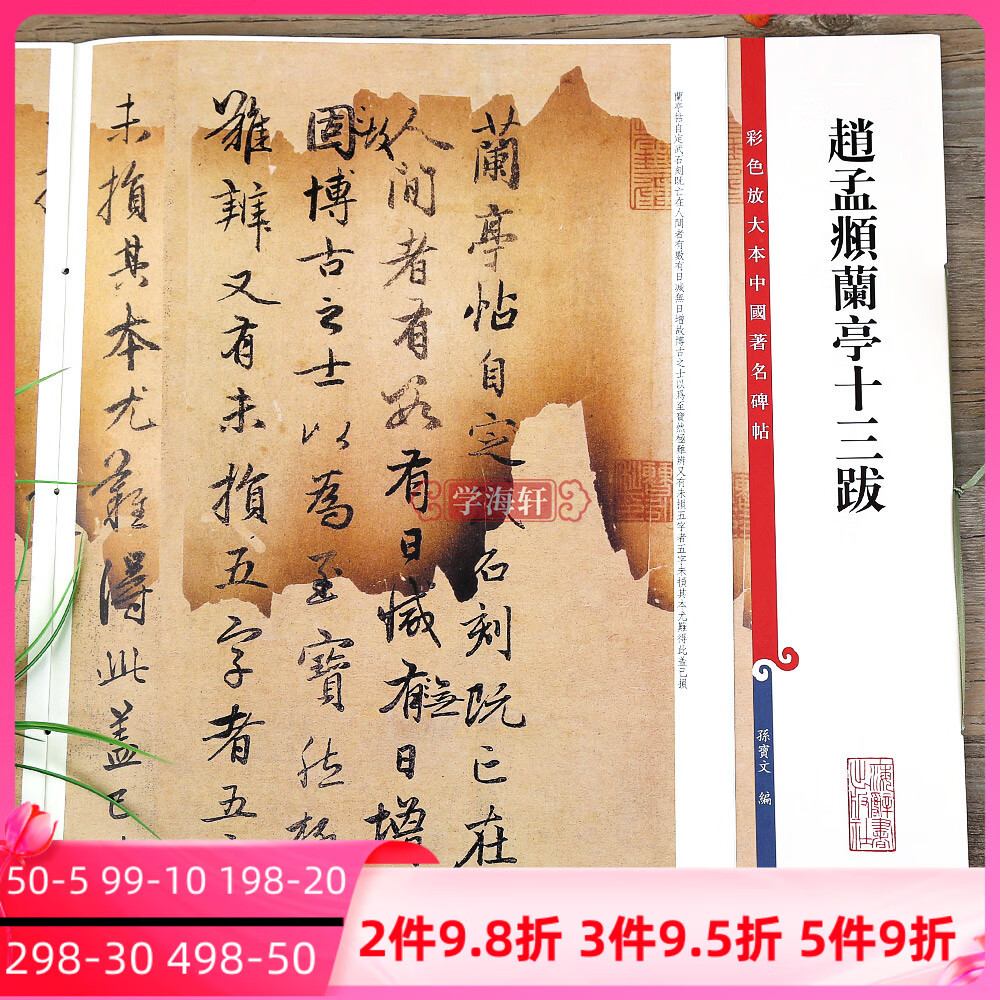 趙孟頫蘭亭十三跋
彩色放大本中國著名碑帖
孫寶文 編
上海辭書出版社
蘭亭帖自定武石刻既亡在人間者有數有日減無日增故博古之士以爲至寶然極難辨又有未損五字者五字未損其本尤難得此蓋已損
蘭亭帖自定武石刻既亡在
人間者有數有日減有無日增
固故博古之士以為至寶然極
難辨又有未損五字者五
未損其本尤難得此蓋已
学海轩
50-5 99-10 198-20
298-30 498-50
2件9.8折 3件9.5折 5件9折